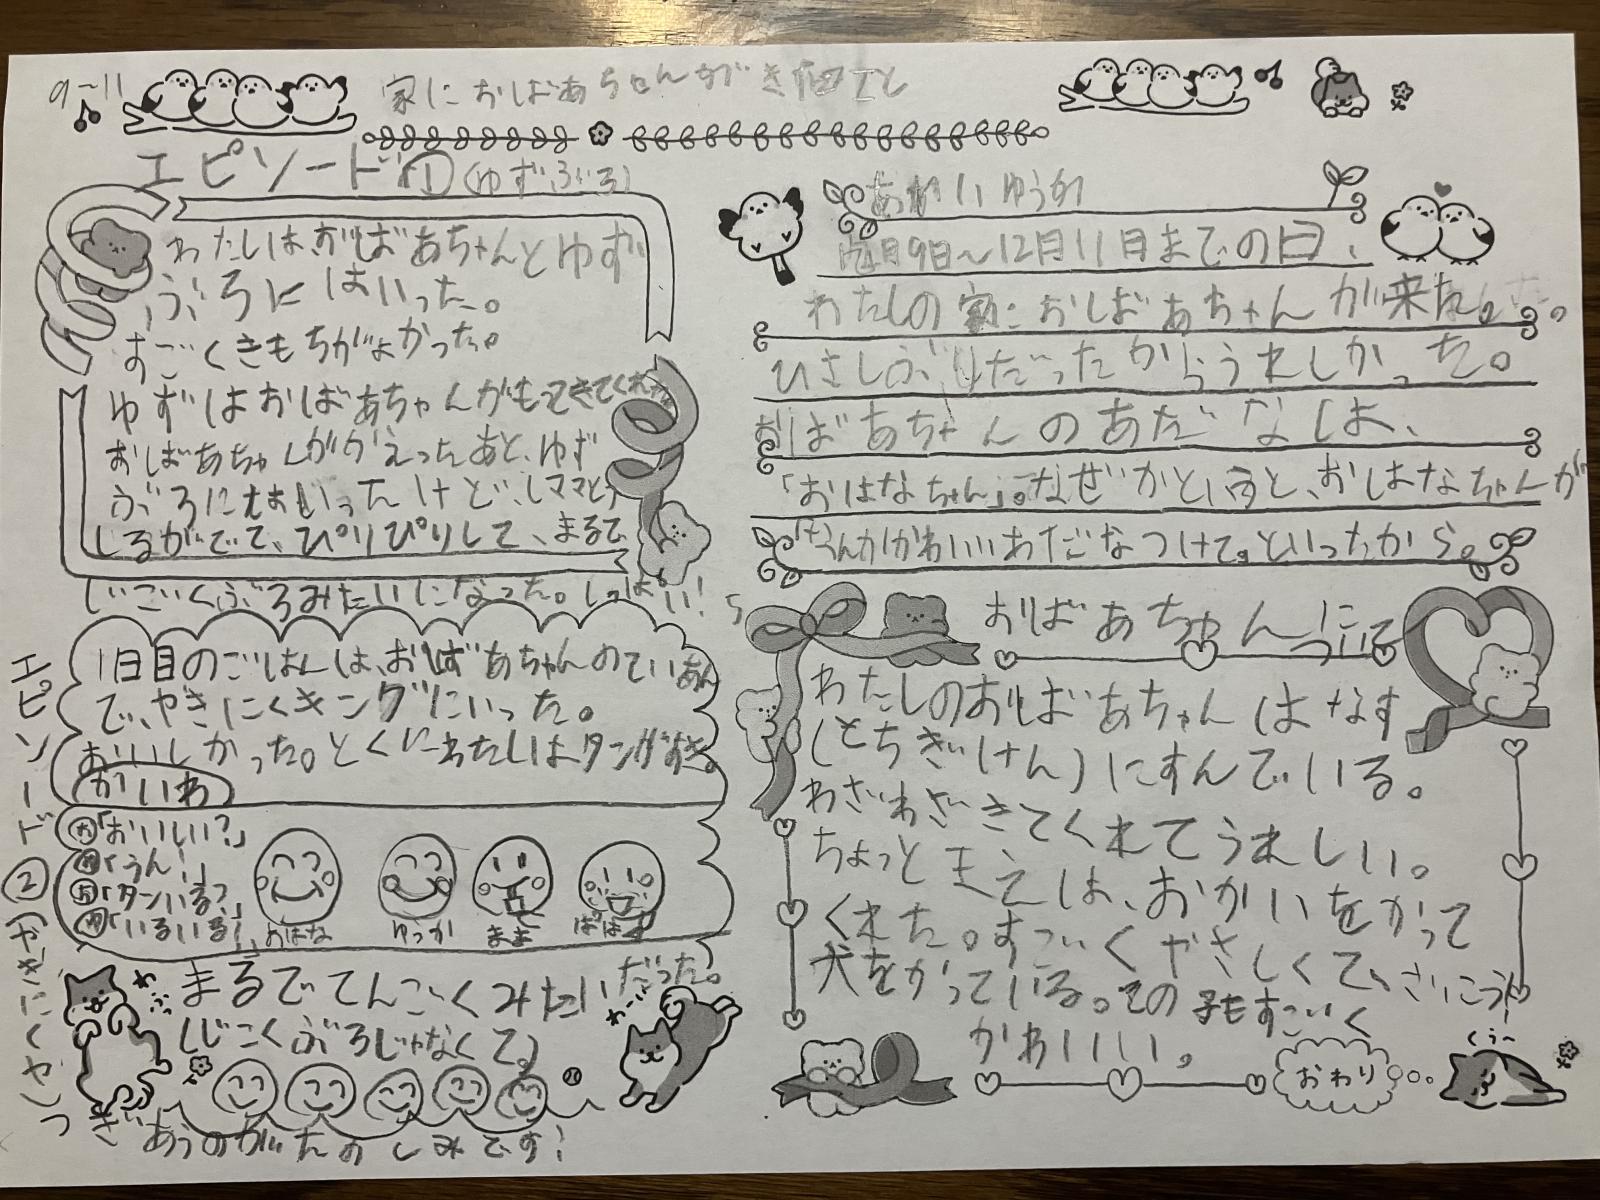 9〜11
家におばあちゃんがきたこと
エピソード①(ゆずぶろ)
わたしは、おばあちゃんとゆず
ぶろにはいった。
すごくきもちがよかった。
ゆずはおばあちゃんがもってきてくれた
おばあちゃんがかえったあと、ゆず
ぶろにはいったけど、
しるがでて、ぴりぴりして、まるで
じごくぶろみたいになった。しっぱい!
エピソード②(やきにくやさん
1日目のごはんは、おばあちゃんのていあん
で、やきにくキングにいった。
おいしかった。とくにわたしはタンがすき。
かいわ
「おいしい?」
「うん!」
「タンいる?」
「いるいる!」
おはな
ゆうか
まま
ぱぱ
まるでてんごくみたいだった。
(じごくぶろじゃなくて)
つぎあうのがたのしみです!
あかいゆうか
月9日〜12月11日までの日、
わたしの家におばあちゃんが来た。
ひさしぶりだったからうれしかった。
おばあちゃんのあだなは、
「おはなちゃん」。なぜかというと、おはなちゃんが
かわいいあだなつけて。といったから。
おばあちゃんについて
わたしのおばあちゃんはなす
(とちぎけん)にすんでいる。
わざわざきてくれてうれしい。
ちょっとまえは、おかいをかって
くれた。すごくやさしくて、さいこう!
犬をかっている。その子もすごく
かわいいい。
おわり
くぅ〜